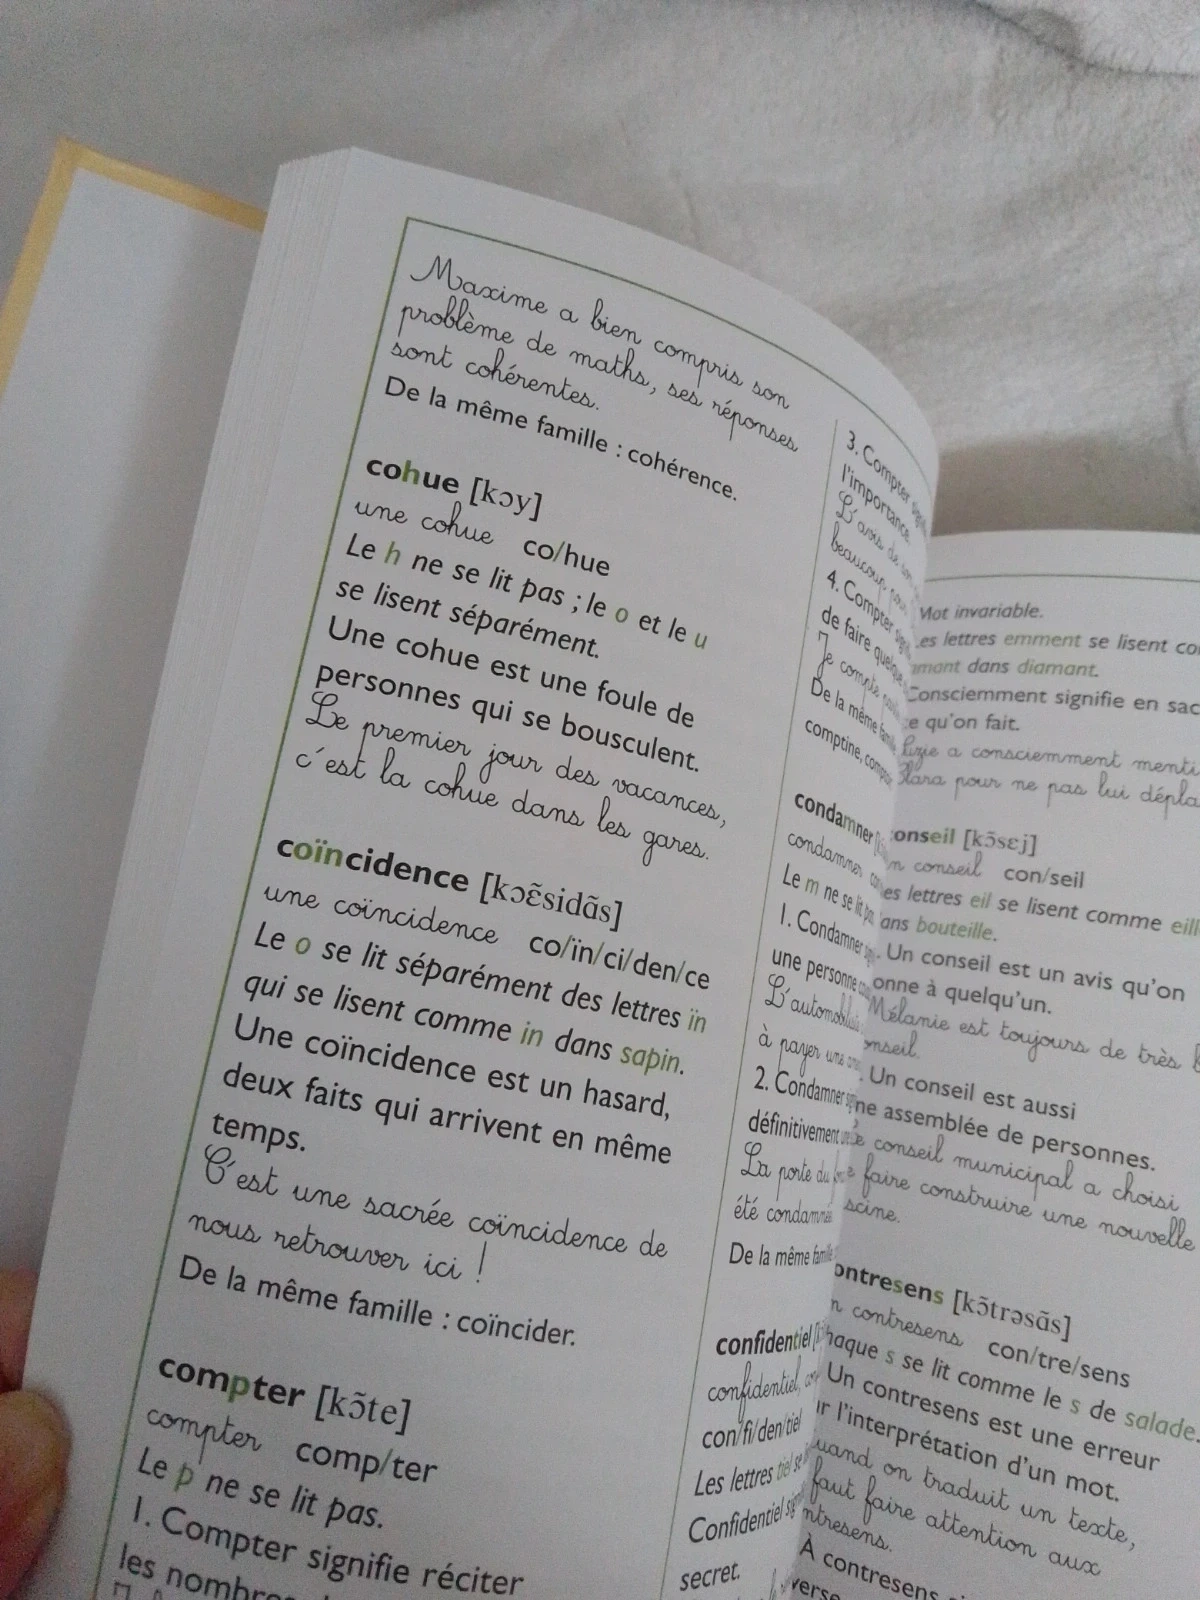 Maxime a bien compris son
problème de maths, ses réponses
sont cohérentes.
De la même famille : cohérence.
cohue [kɔy]
une cohue co/hue
Le h ne se lit pas ; le o et le u
se lisent séparément.
Une cohue est une foule de
personnes qui se bousculent.
Le premier jour des vacances,
c'est la cohue dans les gares.
coïncidence [kɔɛ̃sidɑ̃s]
une coïncidence co/ïn/ci/den/ce
Le o se lit séparément des lettres ïn
qui se lisent comme in dans sapin.
Une coïncidence est un hasard,
deux faits qui arrivent en même
temps.
C'est une sacrée coïncidence de
nous retrouver ici !
De la même famille : coïncider.
compter [kɔ̃te]
compter comp/ter
Le p ne se lit pas.
1. Compter signifie réciter
les
3. Compter
l'importance.
L'avis de
beaucoup
4. Compter
de faire
Je compte
De la même
comptine,
condamner
condamner
Le m ne se lit
1. Condamner
une personne
L'automobiliste
à payer une
2. Condamner
définitivement
La porte du
été condamnée
De la même
confidentiel
confidentiel,
con/fi/den/tiel
Les lettres tiel se
Confidentiel
secret.
Mot invariable.
lettres emment se lisent
dans diamant.
Consciemment signifie en
qu'on fait.
a consciemment menti
pour ne pas lui
[kɔ̃sɛj]
conseil con/seil
lettres eil se lisent comme
bouteille.
Un conseil est un avis qu'on
à quelqu'un.
Mélanie est toujours de très
Un conseil est aussi
assemblée de personnes.
conseil municipal a choisi
faire construire une nouvelle
[kɔ̃trəsɑ̃s]
contresens con/tre/sens
s se lit comme le s de salade.
Un contresens est une erreur
l'interprétation d'un mot.
on traduit un texte,
faut faire attention aux
À contresens